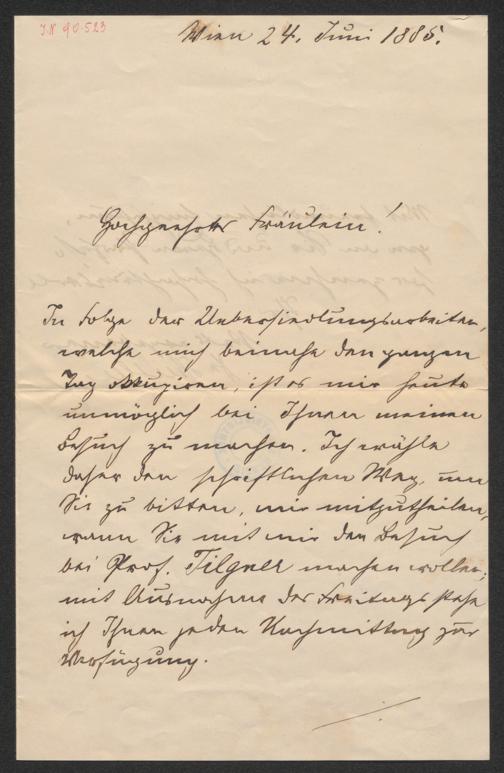 I.N 90.523
Wien 24. Juni 1885.
Hochgeehrtes Fräulein!
In Folge der Uebersiedlungsarbeiten,
welche mich beinahe den ganzen
Tag okkupiren, ist es mir heute
unmöglich bei Ihnen meinen
Besuch zu machen. Ich wähle
daher den schriftlichen Weg, um
Sie zu bitten, mir mitzutheilen,
wann Sie mit mir den Besuch
bei Prof. Tilgner machen wollen;
mit Ausnahme des Freitags stehe
ich Ihnen jeden Nachmittag zur
Verfügung.